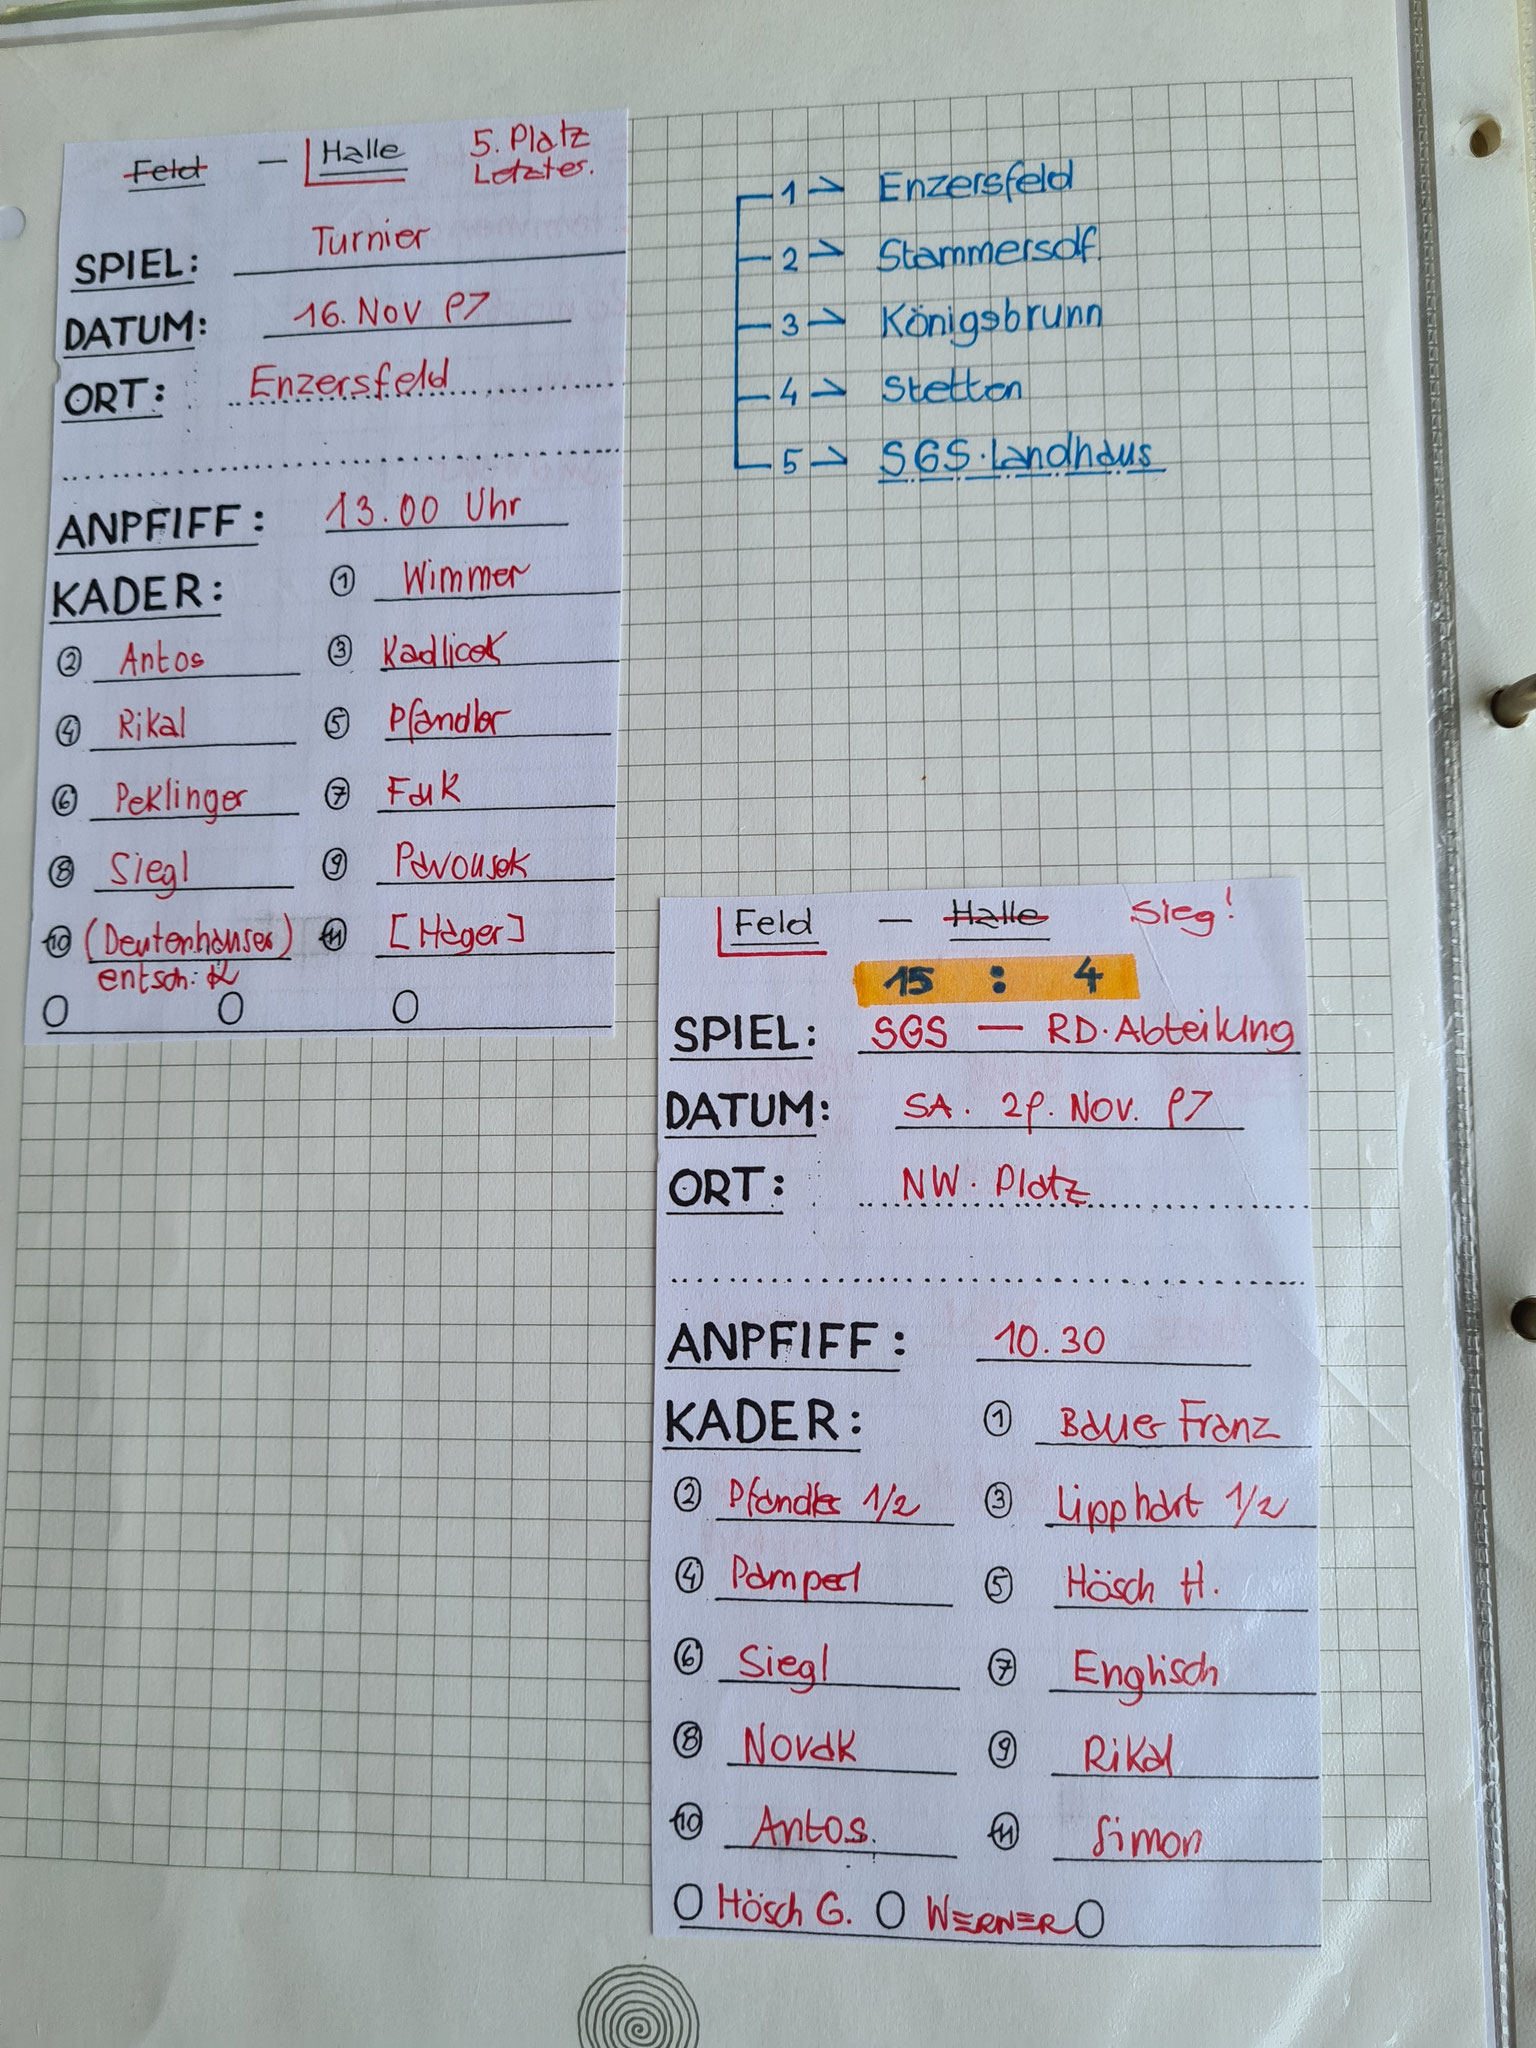 Feld — Halle 5. Platz
Letzter.
SPIEL: Turnier
DATUM: 16. Nov 97
ORT: Enzersfeld
ANPFIFF: 13.00 Uhr
KADER: 1 Wimmer
2 Antos 3 Kadlicek
4 Rikal 5 Pfandler
6 Peklinger 7 Fuk
8 Siegl 9 Pavousek
10 (Deutenhauser) 11 [Hager]
entsch:
1 → Enzersfeld
2 → Stammersdf.
3 → Königsbrunn
4 → Stetten
5 → SGS. Landhaus
Feld — Halle Sieg!
15 : 4
SPIEL: SGS — RD. Abteilung
DATUM: SA. 29. Nov. 97
ORT: NW. Platz
ANPFIFF: 10.30
KADER: 1 Bauer Franz
2 Pfandler 1/2 3 Lipphart 1/2
4 Pamperl 5 Hösch H.
6 Siegl 7 Englisch
8 Novak 9 Rikal
10 Antos. 11 Simon
Hösch G. WERNER